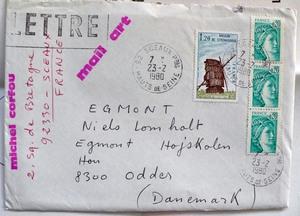 LETTRE
mail art
michel corfou
2, sq. de Bretagne
92330 - SCEAUX
FRANCE
92 SCEAUX PPAL
7 H
23-2
1980
HAUTS DE SEINE
1,20
EGMONT
Niels Lomholt
Egmont Højskolen
Hou
8300 Odder
(Danemark)
23-2
1980
HAUTS DE SEINE